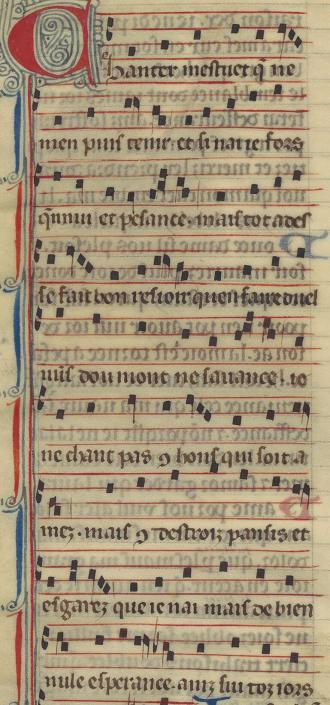 Chanter mestuet q̃ ne
men puis tenir et si nai ie fors
q̃nnui et pesance. mais tot ades
se fait bon resioir quen faire duel
nus dou mont ne sauance. ie
ne chant pas ꝯ hons qui soit a
mez. mais ꝯ destroiz pansis et
esgarez que ie nai mais de bien
nule esperance. ainz sui toz iors